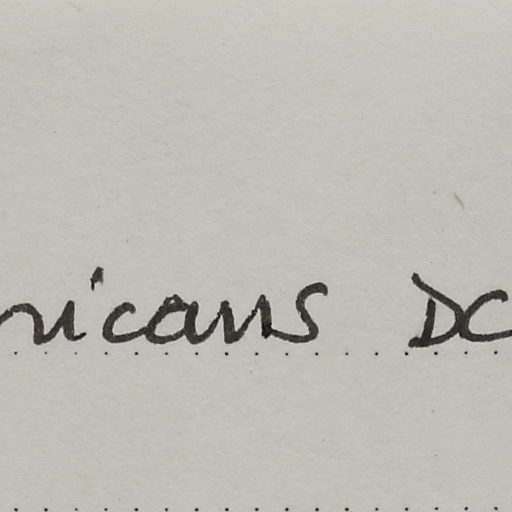 ricans DC